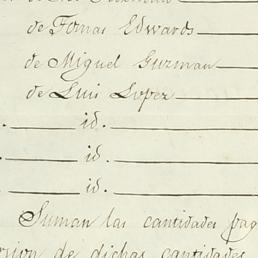 de Tomas Edwards
de Miguel Guzman
de Luis Lopez
id.
id.
id.
Suman las cantidades pag
de dichas cantidades